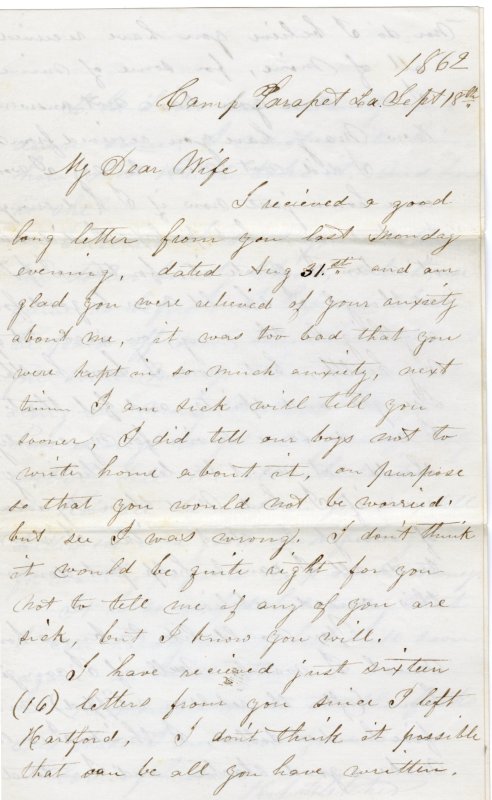 1862
Camp Parapet La. Sept 18th.
My Dear Wife
I recieved a good
long letter from you last Monday
evening, dated Aug 31.st and am
glad you were relieved of your anxiety
about me, it was too bad that you
were kept in so much anxiety, next
time I am sick will tell you
sooner, I did tell our boys not to
write home about it, on purpose
so that you would not be worried.
but see I was wrong. I don't think
it would be quite right for you
not to tell me if any of you are
sick, but I know you will.
I have recieved just sixteen
(16) letters from you since I left
Hartford, I don't think it possible
that can be all you have written.